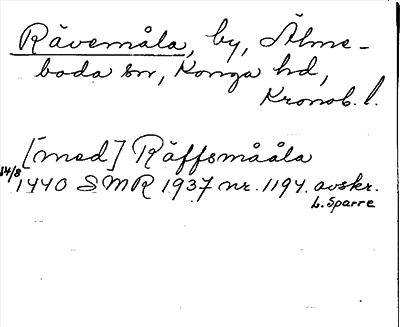 Rävemåla, by, Älme-
boda sn, Konga hd,
Kronob. l.
[med] Räffsmååla
14/8 1440 SMR 1937 nr. 1194. avskr.
L. Sparre